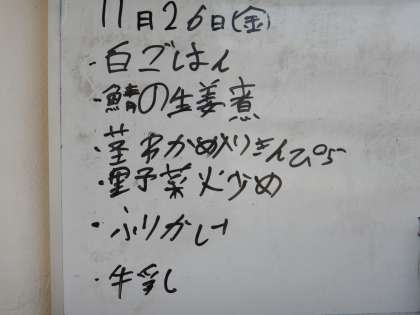 11月26日(金)
・白ごはん
・鯖の生姜煮
・茎わかめ入りきんぴら
・野菜炒め
・ふりかけ
・牛乳